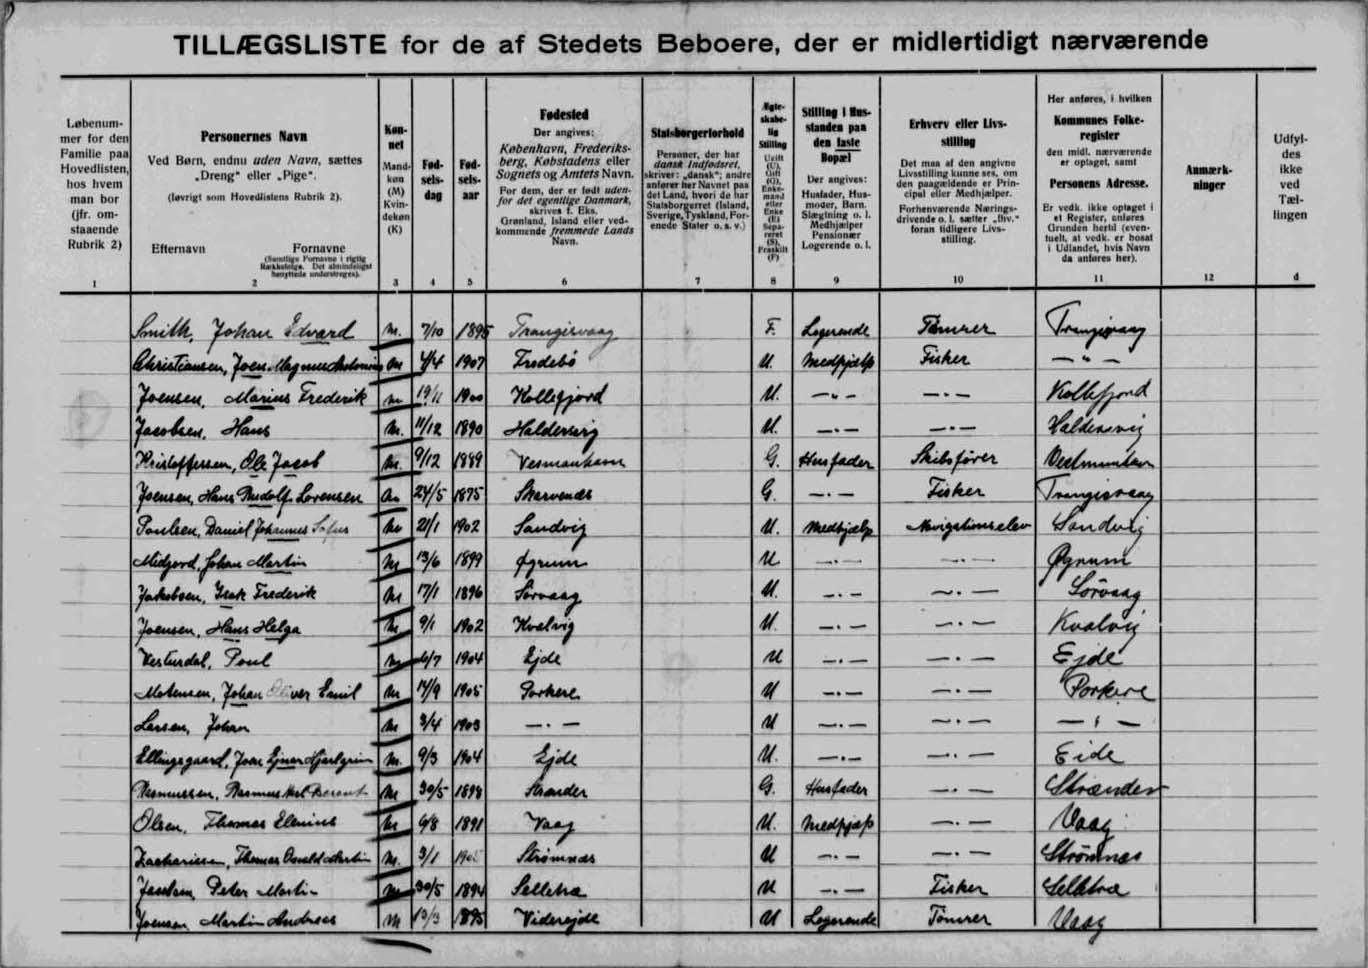 TILLÆGSLISTE for de af Stedets Beboere, der er midlertidigt nærværende
Løbenum-
mer for den
Familie paa
Hovedlisten,
hos hvem
man bor
(jfr. om-
staaende
Rubrik 2)
1
Personernes Navn
Ved Børn, endnu uden Navn, sættes
„Dreng“ eller „Pige“.
(Iøvrigt som Hovedlistens Rubrik 2).
Efternavn Fornavne
(Samtlige Fornavne i rigtig
Rækkefølge. Det almindeligst
benyttede understreges).
2
Køn-
net
Mand-
køn
(M)
Kvin-
dekøn
(K)
3
Fød-
sels-
dag
4
Fød-
sels-
aar
5
Fødested
Der angives:
København, Frederiks-
berg, Købstadens eller
Sognets og Amtets Navn.
For dem, der er født uden-
for det egentlige Danmark,
skrives f. Eks.
Grønland, Island eller ved-
kommende fremmede Lands
Navn.
6
Statsborgerforhold
Personer, der har
dansk Indfødsret,
skriver: „dansk“; andre
anfører her Navnet paa
det Land, hvori de har
Statsborgerret (Island,
Sverige, Tyskland, For-
enede Stater o. s. v.)
7
Ægte-
skabe-
lig
Stilling
Ugift
(U),
Gift
(G),
Enke-
mand
eller
Enke
(E)
Sepa-
reret
(S),
Fraskilt
(F)
8
Stilling i Hus-
standen paa
den faste
Bopæl
Der angives:
Husfader, Hus-
moder, Barn.
Slægtning o. l.
Medhjælper
Pensionær
Logerende o. l.
9
Erhverv eller Livs-
stilling
Det maa af den angivne
Livsstilling kunne ses, om
den paagældende er Prin-
cipal eller Medhjælper.
Forhenværende Nærings-
drivende o. l. sætter „fhv.“
foran tidligere Livs-
stilling.
10
Her anføres, i hvilken
Kommunes Folke-
register
den midl. nærværende
er optaget, samt
Personens Adresse.
Er vedk. ikke optaget i
et Register, anføres
Grunden hertil (even-
tuelt, at vedk. er bosat
i Udlandet, hvis Navn
da anføres her).
11
Anmærk-
ninger
12
Udfyl-
des
ikke
ved
Tæl-
lingen
d
Smith, Johan Edvard M. 7/10 1895 Trangisvaag F. Logerende Tømrer Trangisvaag
Christiansen, Joen Magnus Antonius M 4/4 1907 Fredebø U. Medhjælp Fisker — „ —
Joensen, Marius Frederik M 19/11 1900 Kollefjord U. — „ — — . — Kollefjord
Jacobsen, Hans M. 11/12 1890 Haldersvig U. — . — — . — Haldersvig
Kristoffersen, Ole Jacob M. 9/12 1889 Vesmanhavn G. Husfader Skibsfører Vestmanhavn
Joensen, Hans Rudolf Lorensen M 24/5 1875 Skarvenæs G. — . — Fisker Trangisvaag
Poulsen, Daniel Johannes Sofus M 21/1 1902 Sandvig U. Medhjælp Navigationselev Sandvig
Midjord, Johan Martin M 13/6 1899 Øyrum U — . — — . — Øyrum
Jakobsen, Isak Frederik M 17/1 1896 Sørvaag U. — . — — . — Sørvaag
Joensen, Hans Helga M 9/1 1902 Kvalvig U. — . — — . — Kvalvig
Vesturdal, Poul M 6/7 1904 Ejde U — . — — . — Ejde
Mortensen, Johan Oliver Emil M 14/9 1905 Porkere U — . — — . — Porkere
Larsen, Johan M 3/4 1903 — . — U — . — — . — — . —
Ellingsgaard, Joen Ejnar Hjartgrim M. 9/3 1904 Ejde U. — . — — . — Eide
Rasmussen, Rasmus Karl Berent M 30/5 1898 Strænder G. Husfader — . — Strænder
Olsen, Thomas Elenius M 9/8 1891 Vaag U. Medhjælp — . — Vaag
Zachariasen, Thomas Osvald Martin M. 3/1 Strømnæs U — . — — . — Strømnæs
Peter Martin M 30/5 1894 Selletræ U — . — Fisker Selletræ
Joensen, Martin Andreas M 13/3 1895 Viderejde U Logerende Tømrer Vaag